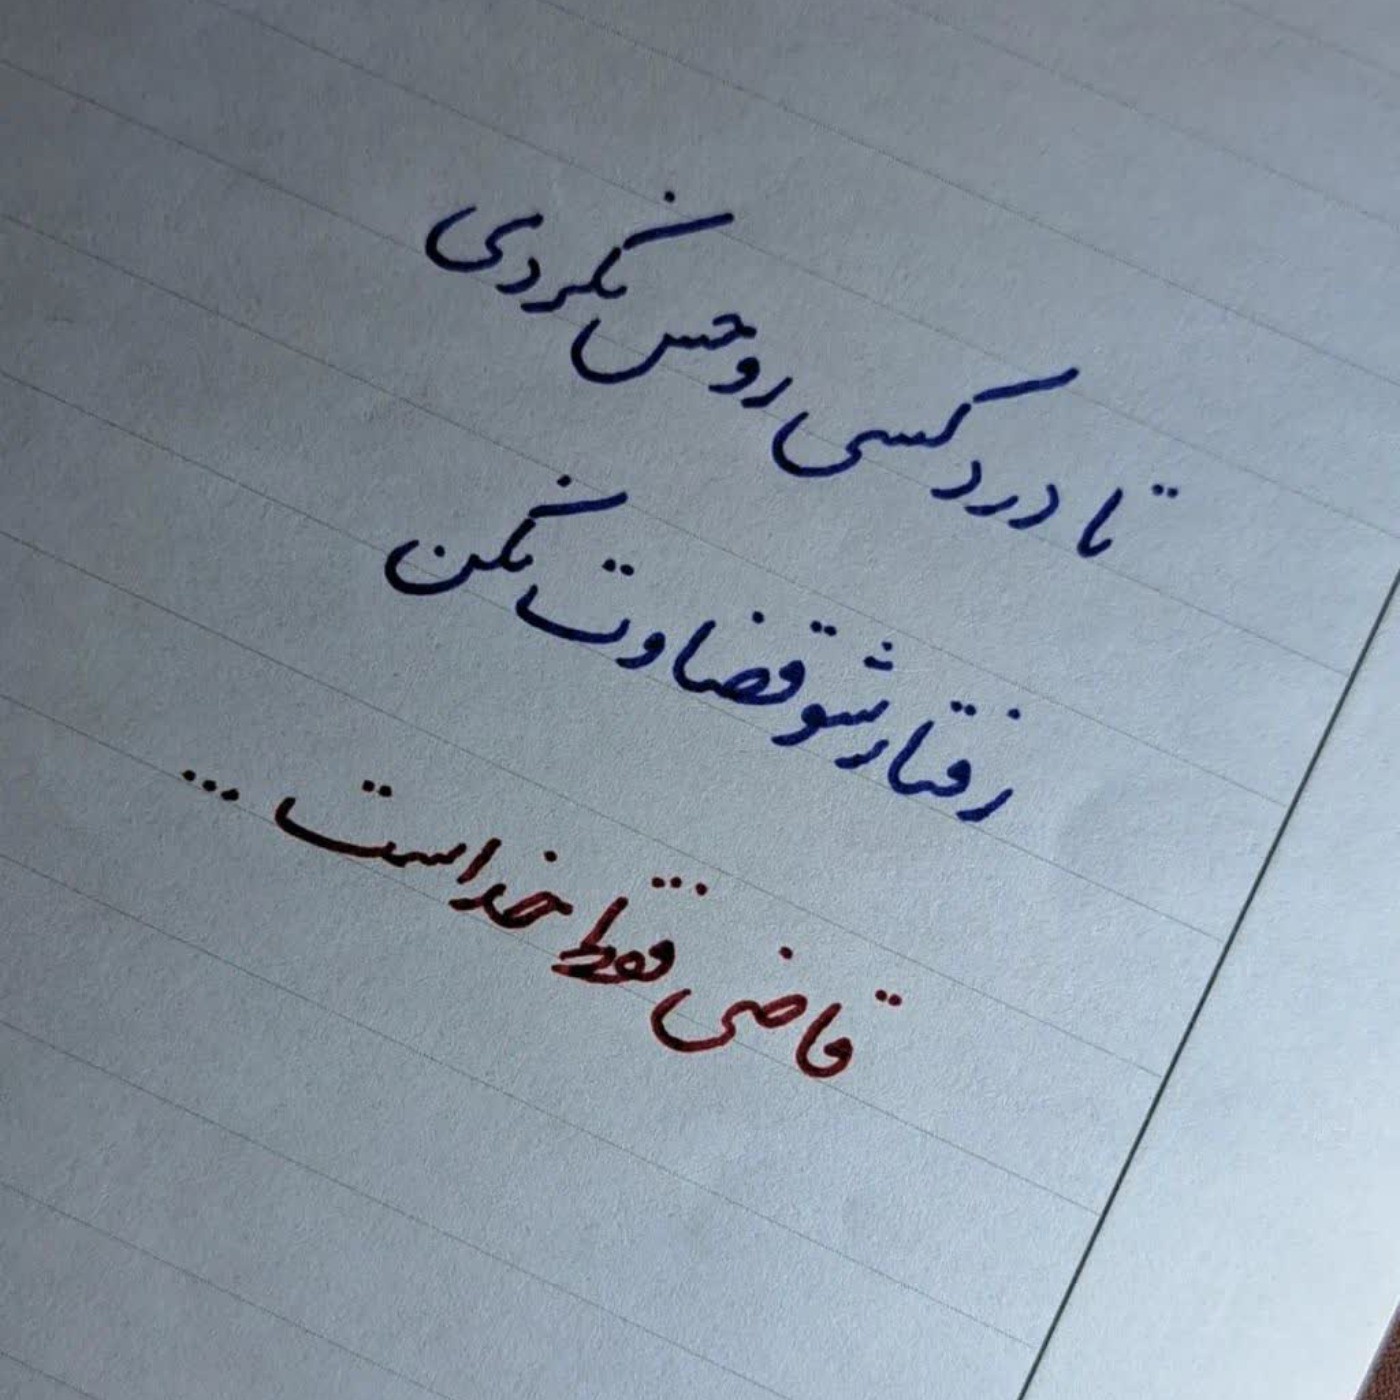 تا درد کسی رو حس نکردی
رفتارشو قضاوت نکن
قاضی فقط خداست ...